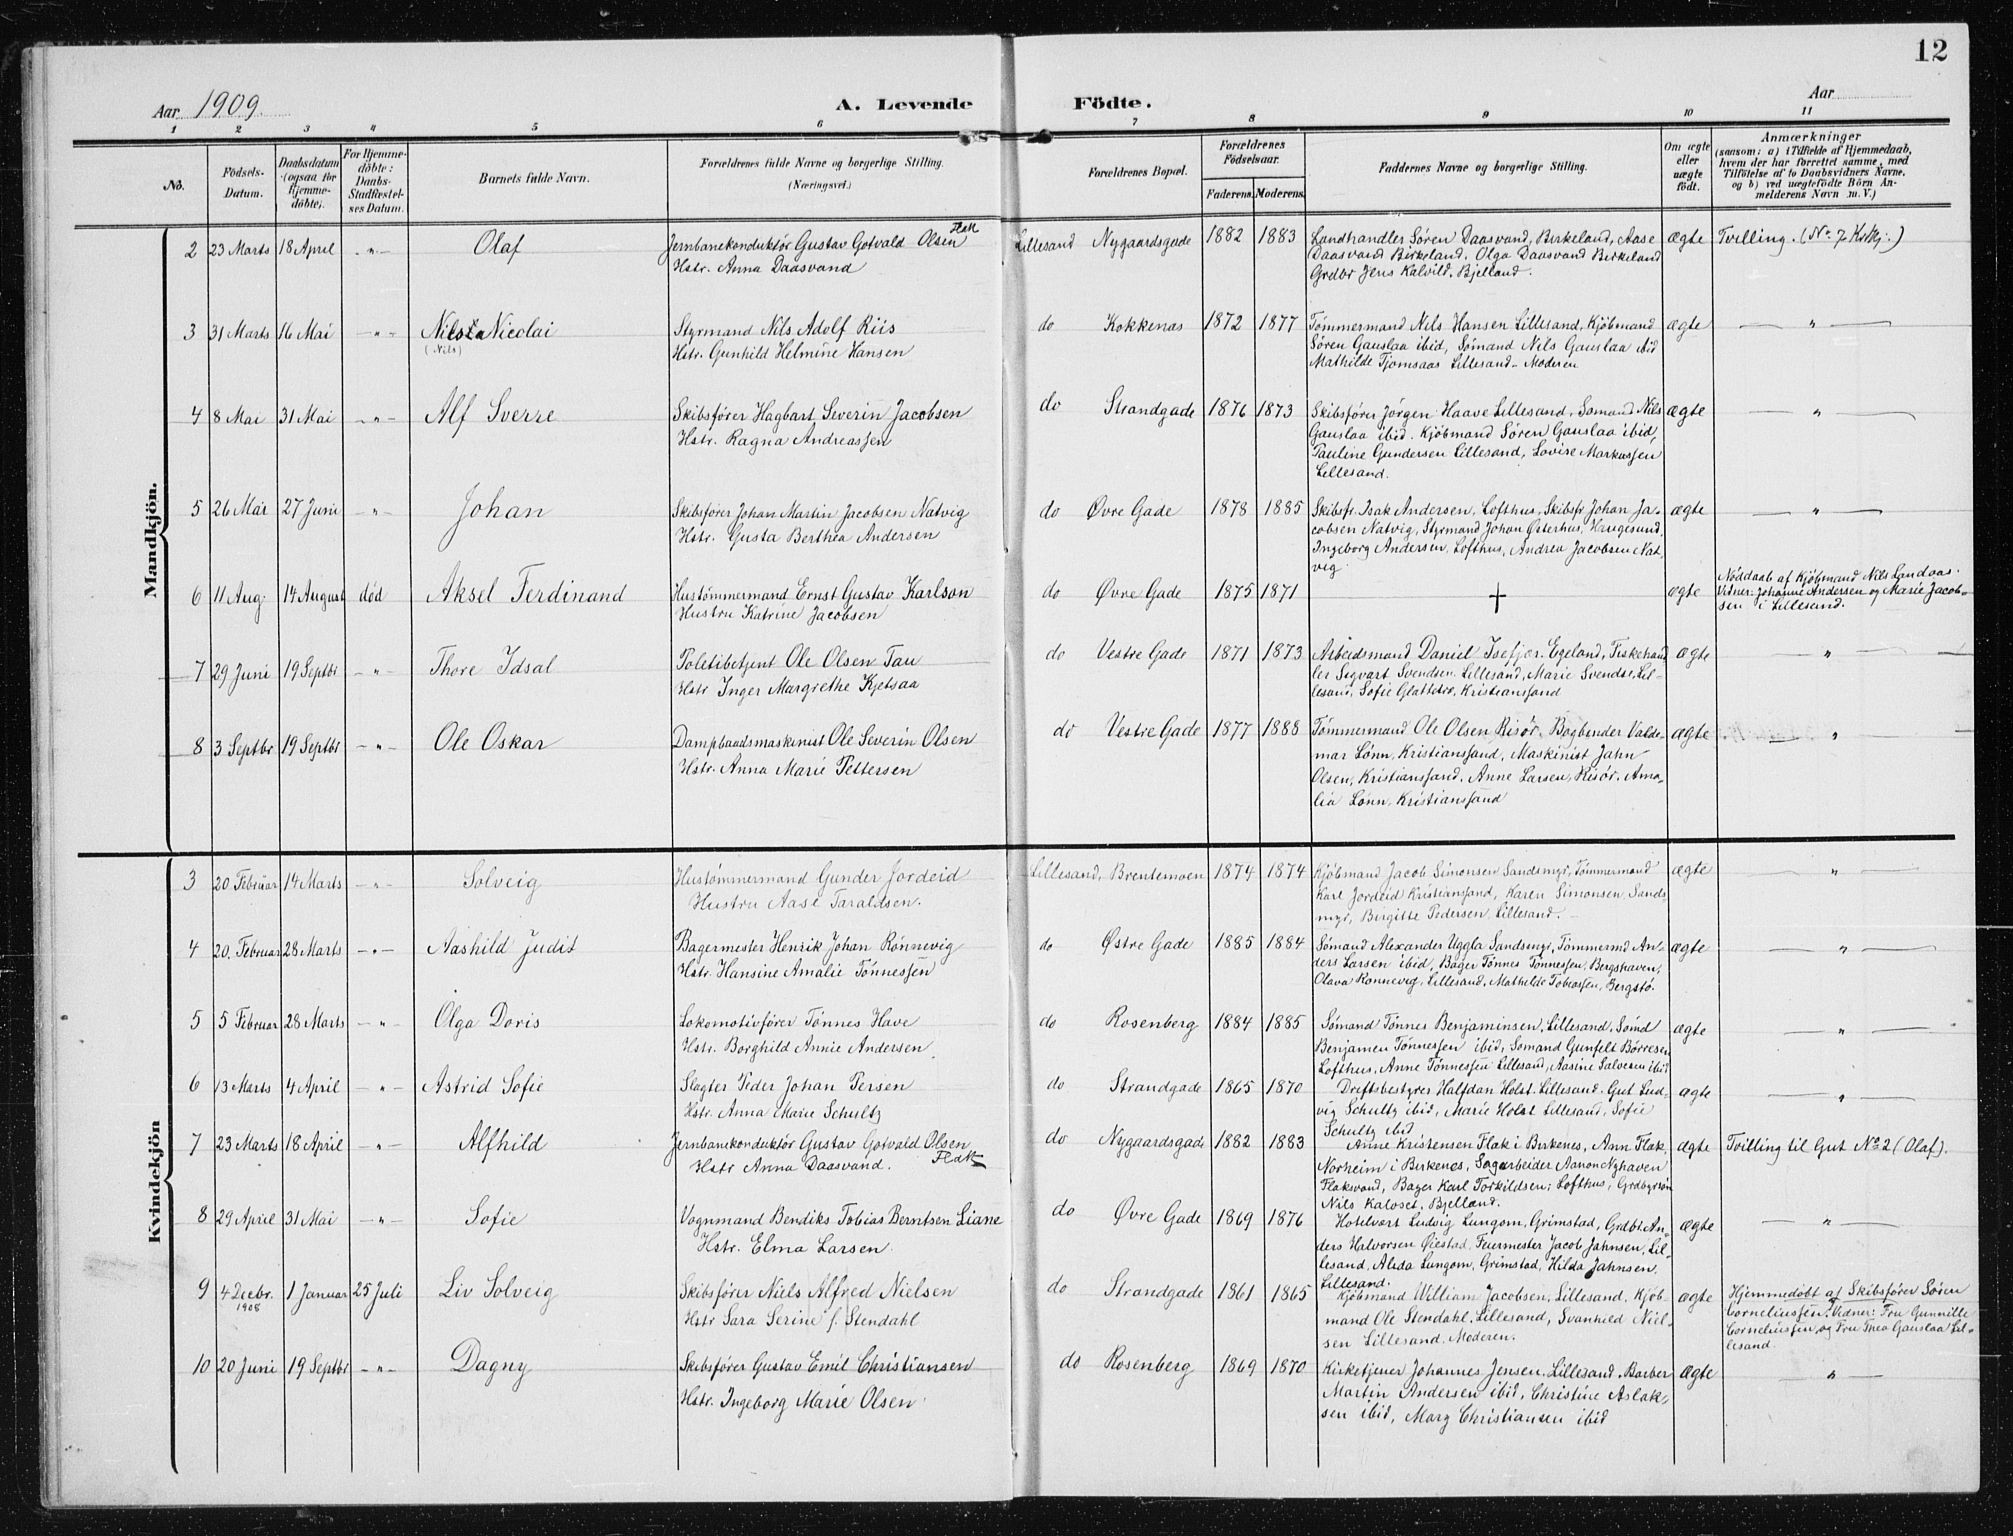 12
Aar 1909.
A. Levende Födte.
Aar
1 2 3 4 5 6 7 8 9 10 11
No.
Födsels-
Datum.
Daabsdatum
(ogsaa for
Hjemme-
döbte).
For Hjemme-
döbte:
Daabs-
Stadfæstel-
ses Datum.
Barnets fulde Navn.
Forældrenes fulde Navne og borgerlige Stilling.
(Næringsvei.)
Forældrenes Bopæl.
Forældrenes
Födselsaar.
Faderens. Moderens.
Faddernes Navne og borgerlige Stilling.
Om ægte
eller
uægte
födt.
Anmærkninger
(saasom: a) i Tilfælde af Hjemmedaab,
hvem der har forrettet samme, med
Tilföielse af to Daabsvidners Navne,
og b) ved uægtefödte Börn An-
melderens Navn m. V.)
Mandkjön.
2 23 Marts 18 April -"- Olaf
Jernbanekonduktör Gustav Gotvald Olsen Flak
Hstr. Anna Daasvand
Lillesand Nygaardsgade 1882 1883
Landhandler Sören Daasvand, Birkeland, Aase
Daasvand Birkeland, Olga Daasvand Birkeland
Grdbr Jens Kalvild, Bjelland.
ægte Tvilling. (No 7 Kvkj.)
3 31 Marts 16 Mai -"- Nicolai
(Nils)
Styrmand Nils Adolf Riis
Hstr. Gunhild Helmine Hansen
do Kokkenes 1872 1877
Tømmermand Nils Hansen Lillesand, Kjöbmand
Søren Gauslaa ibid, Sømand Nils Gauslaa ibid
Mathilde Tjomsaas Lillesand - Moderen
ægte -"-
4 8 Mai 31 Mai -"- Alf Sverre
Skibsfører Hagbart Severin Jacobsen
Hstr. Ragna Andreassen
do Strandgade 1876 1873
Skibsfører Jörgen Haave Lillesand, Somand Nils
Gauslaa ibid. Kjöbmand Søren Gauslaa ibid,
Pauline Gundersen Lillesand, Lovise Markussen
Lillesand.
ægte -"-
5 26 Mai 27 Juni -"- Johan
Skibsfører Johan Martin Jacobsen Natvig
Hstr. Gusta Berthea Andersen
do Øvre Gade 1878 1885
Skibsfr. Isak Andersen, Lofthus, Skibsfr Johan Ja-
cobsen Natvig, Styrmand Johan Østerhus, Haugesund,
Ingeborg Andersen, Lofthus, Andrea Jacobsen Nat-
vig.
ægte -"-
6 11 Aug. 14 August død Aksel Ferdinand
Hustømmermand Ernst Gustav Karlson
Hustru Katrine Jacobsen
do Øvre Gade 1875 1871 + ægte
Nøddaab af Kjöbmand Nils Landaas.
Vidner: Johanne Andersen og Marie Jacob-
sen i Lillesand.
7 29 Juni 19 Septbr -"- Thore Idsal
Politibetjent Ole Olsen Tau
Hstr Inger Margrethe Kjetsaa
do Vestre Gade 1871 1873
Arbeidsmand Daniel Isefjær. Egeland, Fiskehand
ler Sigvart Svendsen Lillesand, Marie Svendse, Lil-
lesand, Sofie Glattetre, Kristianssand
ægte -"-
8 3 Septbr 19 Septbr -"- Ole Oskar
Dampbaadsmaskinist Ole Severin Olsen
Hstr. Anna Marie Pettersen
do Vestre Gade 1877 1888
Tømmermand Ole Olsen Risör, Bogbinder Valde-
mar Lønn, Kristianssand, Maskinist Jahn
Olsen, Kristianssand, Anne Larsen, Risör. Ama-
lia Lønn, Kristianssand
ægte -"-
Kvindekjön
3 20 Februar 14 Marts -"- Solveig
Hustømmermand Gunder Jordeid
Hustru Aase Taraldsen.
Lillesand, Brentemoen 1874 1874
Kjöbmand Jacob Simonsen Sandsmyr, Tömmermand
Karl Jordeid Kristianssand, Karen Simonsen Sands-
myr, Birgitte Pedersen, Lillesand. -
ægte -"-
4 20. Februar 28 Marts -"- Aashild Judit
Bagermester Henrik Johan Rønnevig
Hstr. Hansine Amalie Tønnessen
do Østre Gade 1885 1884
Sømand Alexander Uggla Sandsmyr, Tømmermd An-
ders Larsen ibid, Bager Tønnes Tønnessen, Bergshaven,
Olava Rønnevig, Lillesand, Mathilde Tobiassen, Bergstø.
ægte -"-
5 5 Februar 28 Marts -"- Olga Doris
Lokomotivfører Tönnes Have
Hstr. Borghild Annie Andersen
do Rosenberg 1884 1885
Sømand Tønnes Benjaminsen, Lillesand, Sømd
Benjamin Tønnessen ibid, Somand Gunfelt Børresen
Lofthus, Anne Tønnessen Lillesand, Aasine Salvesen ibid
ægte -"-
6 13 Marts 4 April -"- Astrid Sofie
Slagter Peder Johan Persen
Hstr. Anna Marie Schultz
do Strandgade 1865 1870
Driftsbestyrer Halfdan Holst, Lillesand. Gut Lud-
vig Schultz ibid, Marie Holst Lillesand, Sofie
Schultz ibid
ægte -"-
7 23 Marts 18 April -"- Alfhild
Jernbanekonduktör Gustav Gotvald Olsen
Hstr Anna Daasvand. Flak
do Nygaardsgade 1882 1883
Anne Kristensen Flak i Birkenes, Ann Flak,
Norheim i Birkenes, Sagarbeider Aanon Nyhaven
Flaksvand, Bager Karl Torkildsen, Lofthus, Grdbrsøn
Nils Kaloset, Bjelland.
ægte Tvilling til Gut No 2 (Olaf).
8 29 April 31 Mai -"- Sofie
Vognmand Bendiks Tobias Berntsen Liane
Hstr. Elma Larsen.
do Øvre Gade 1869 1876
Hotelvært Ludvig Lungom, Grimstad, Grdbr. An-
ders Halvorsen Øiestad, Feiermester Jacob Jahnsen, Lil-
lesand, Alida Lungom, Grimstad, Hilda Jahnsen,
Lillesand.
ægte -"-
9 4 Decbr. 1 Januar 25 Juli Liv Solveig
1908
Skibsfører Niels Alfred Nielsen
Hstr Sara Serine f. Stendahl
do Strandgade 1861 1865
Kjöbmand William Jacobsen, Lillesand, Kjöb-
mand Ole Stendahl, Lillesand, Svanhild Niel-
sen Lillesand. Moderen.
ægte
Hjemmedöbt af Skibsfører Sören
Corneliussen. Vidner: Fru Gunnille
Corneliussen og Fru Thea Gauslaa Lil-
lesand.
10 20 Juni 19 Septbr -"- Dagny
Skibsfører Gustav Emil Christiansen
Hstr. Ingeborg Marie Olsen.
do Rosenberg 1869 1870
Kirketjener Johannes Jensen, Lillesand, Barber
Martin Andersen ibid, Christine Aslak-
sen ibid, Mary Christiansen ibid
ægte -"-